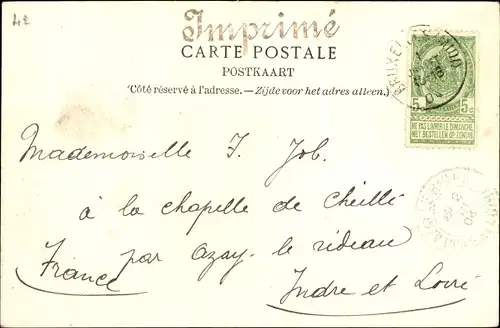 42
Imprimé
CARTE POSTALE
POSTKAART
(Côté réservé à l'adresse. — Zijde voor het adres alleen.)
5c 5c
NE PAS LIVRER LE DIMANCHE
NIET BESTELLEN OP ZONDAG
Mademoiselle J. Job.
à la chapelle de Cheillé
par Azay. le rideau
France
Indre et Loire